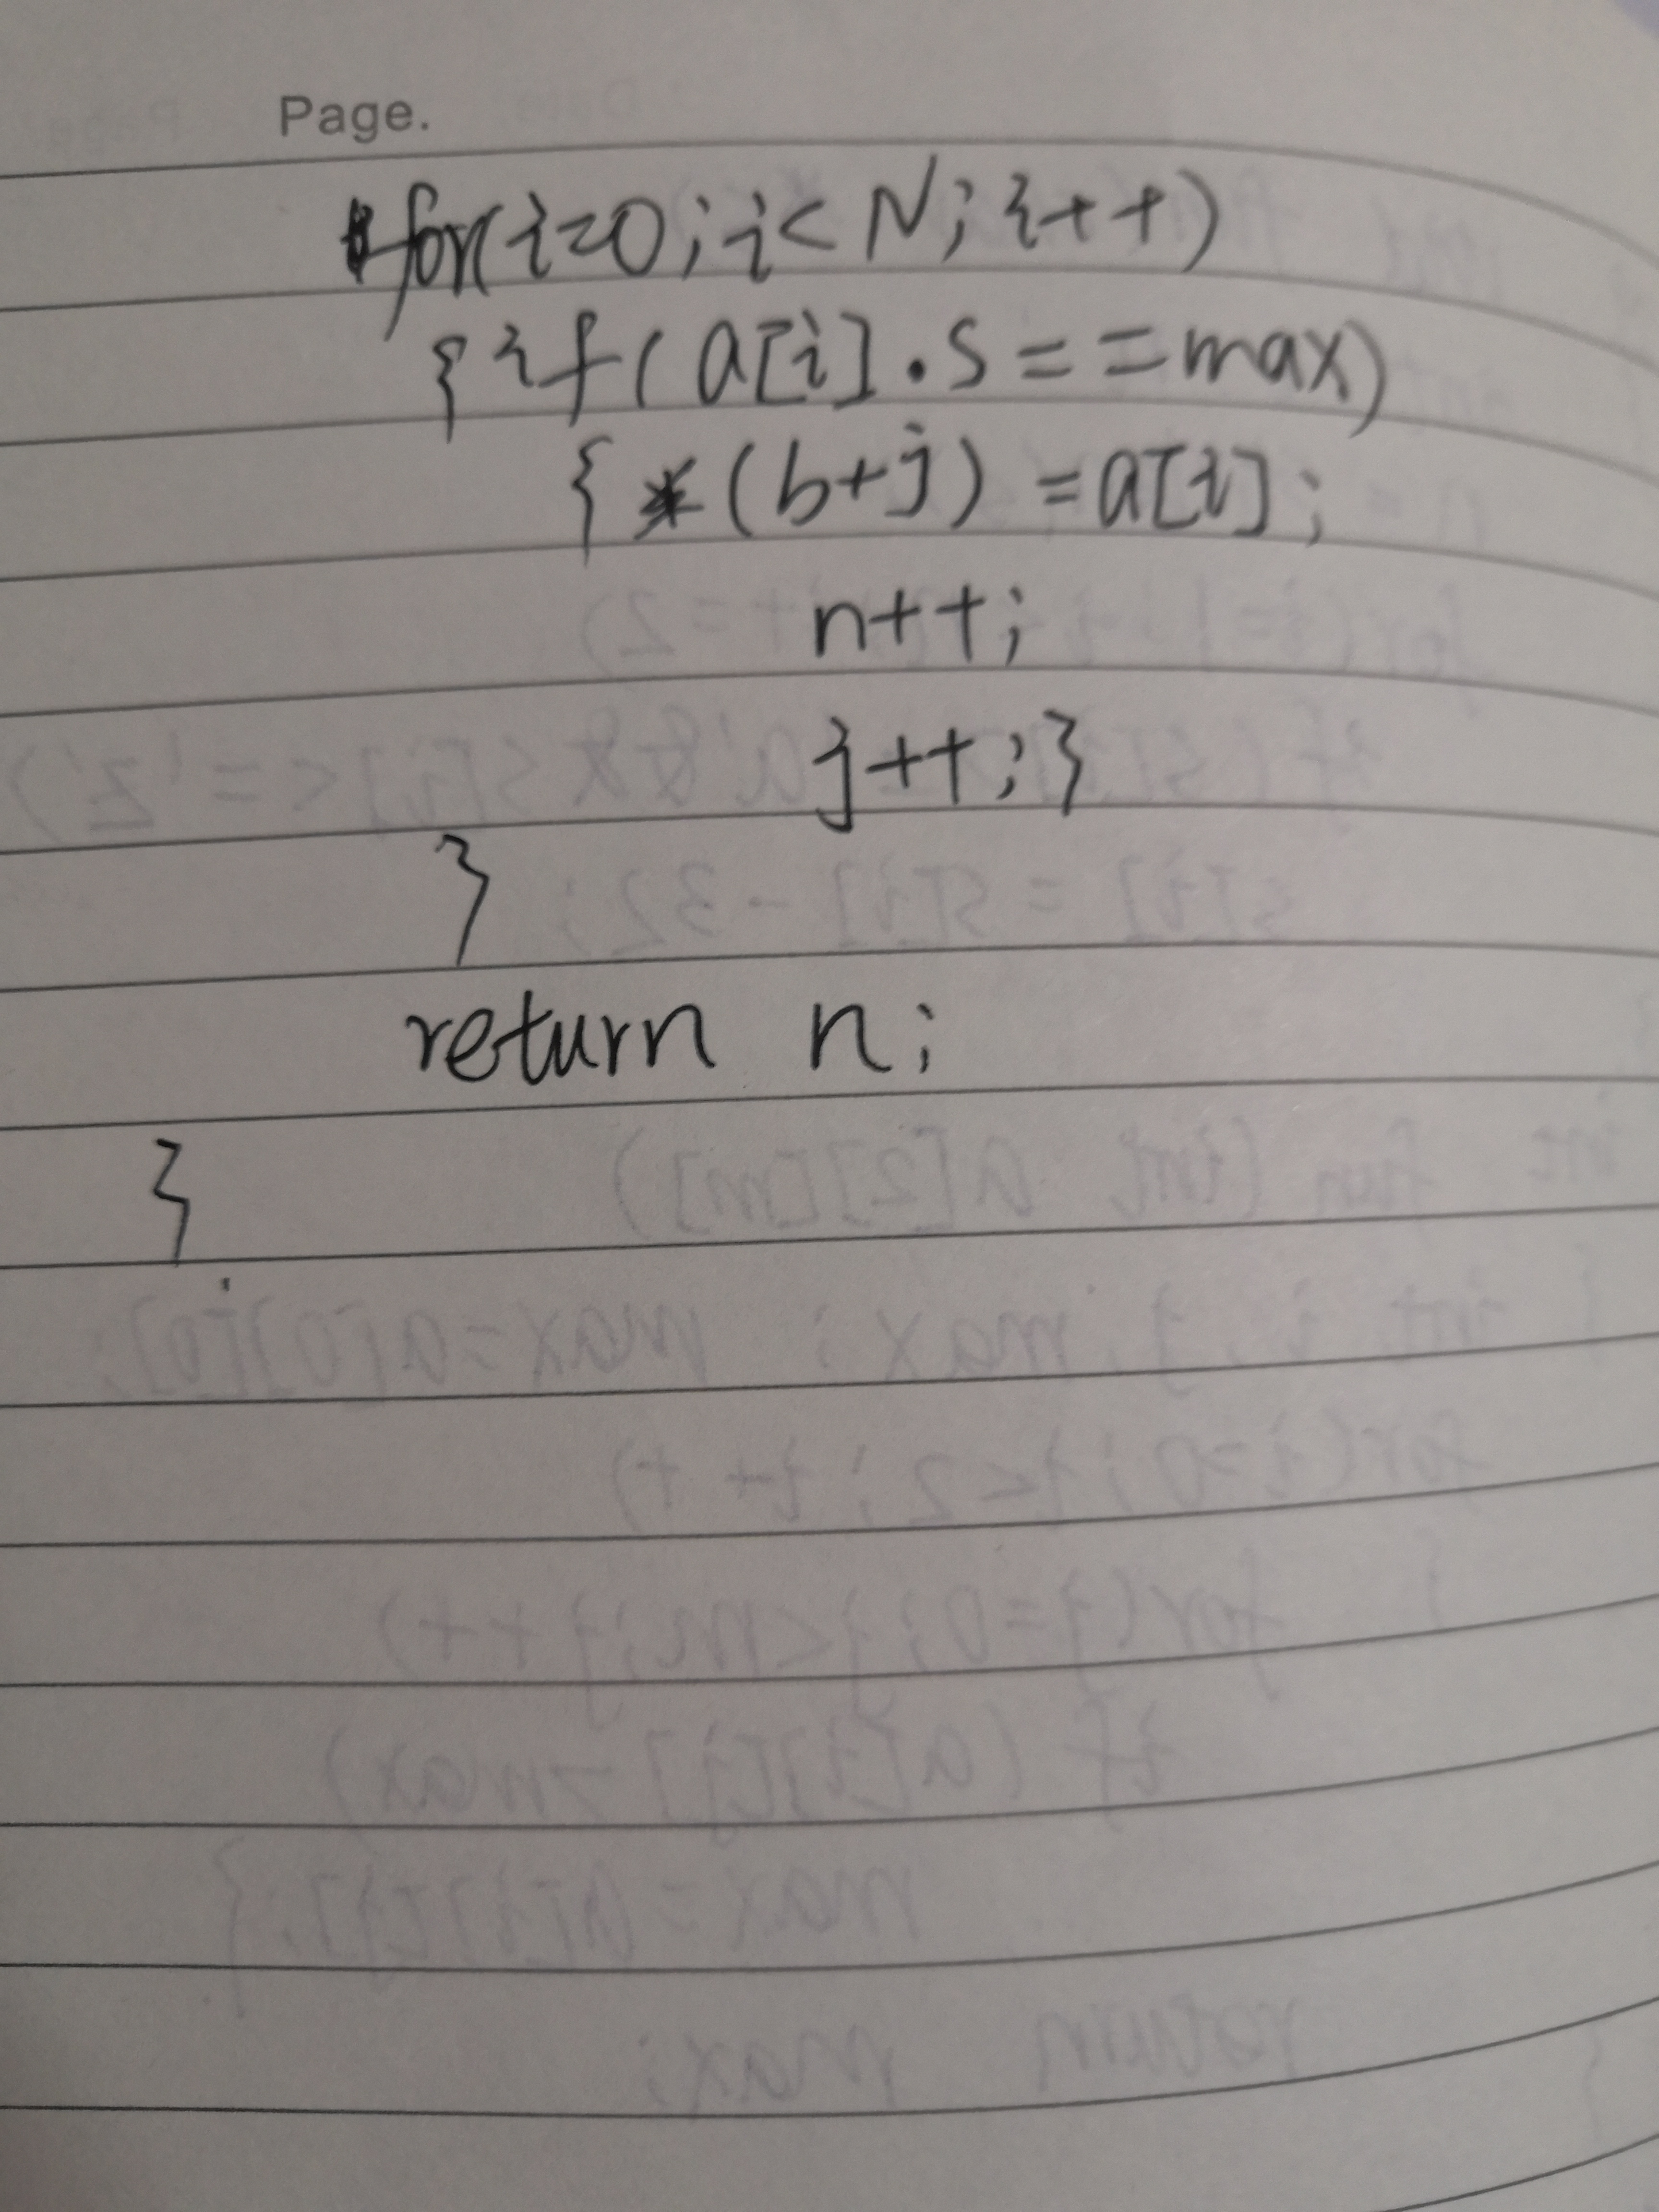 Page.
for(i=0;i<N;i++)
{if(a[i].s==max)
{*(b+j)=a[i];
n++;
j++;}
}
return n;
}